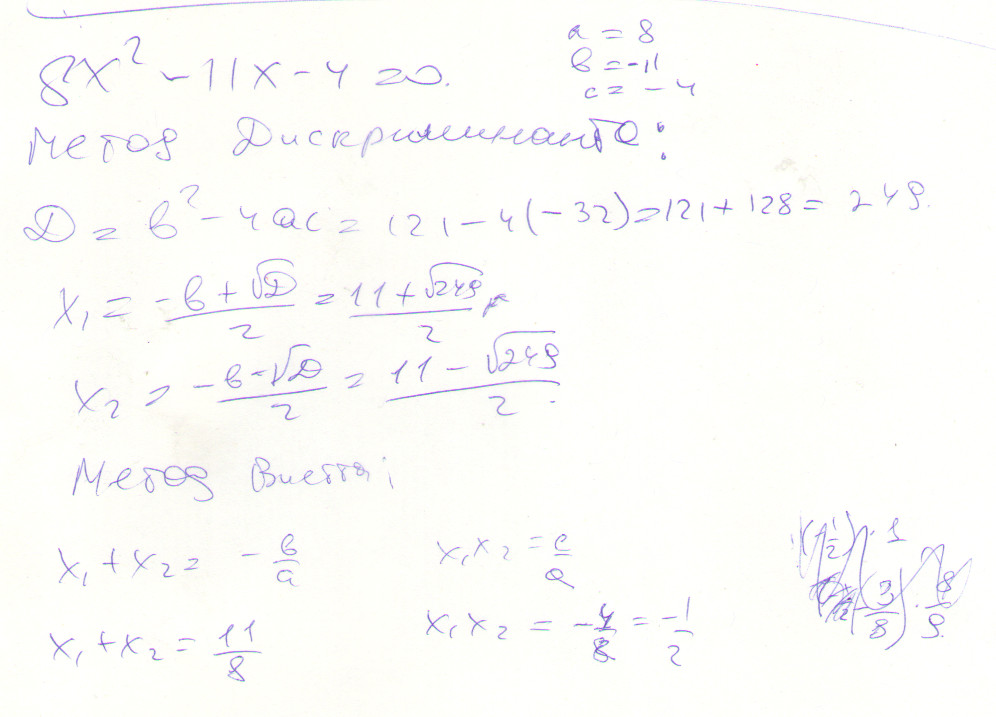 8x² - 11x - 4 = 0.
a = 8
в = -11
c = -4
Метод Дискриминанта:
D = в² - 4ac = 121 - 4(-32) = 121 + 128 = 249.
x₁ = (-в + √D)/2 = (11 + √249)/2
x₂ = (-в - √D)/2 = (11 - √249)/2.
Метод Виетта:
x₁ + x₂ = -в/a
x₁x₂ = c/a
x₁ + x₂ = 11/8
x₁x₂ = -4/8 = -1/2